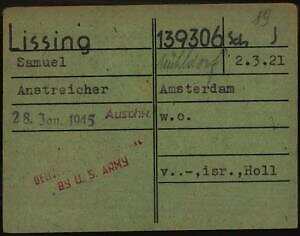 19
Lissing 139306 Sch J
Samuel Mühldorf 2.3.21
Anstreicher Amsterdam
28. Jan. 1945 Auschw. w.o.
BY U.S. ARMY
v..-,isr.,Holl